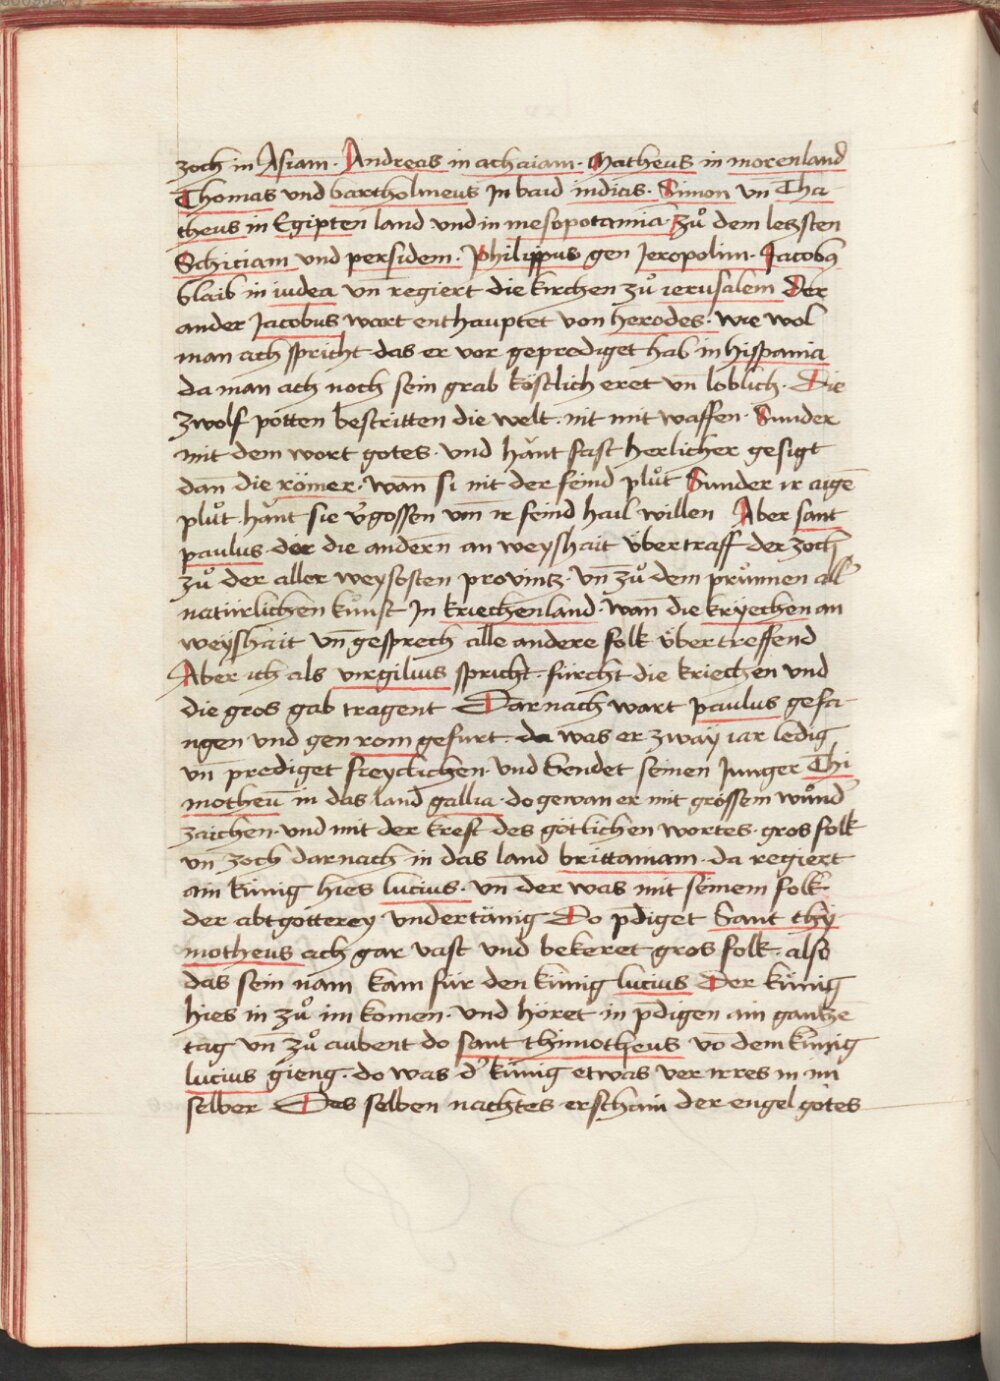 zoch in Asiam · Andreas in achaiam · Matheus in morenland
Thomas und bartholmeus In baid indias · Simon vn̄ Tha-
theus in Egipten land und in mesopotamia · zů dem letzsten
Schiciam und persidem · philippus gen Jeropolim · Jacobus
blaib in iudea vn̄ regiert die kirchen zů ierusalem Der
ander Jacobus wart enthauptet von herodes · wie wol
man ach spricht das er vor geprediget hab in hispania
da man ach noch sein grab köstlich eret vn̄ loblich · Die
zwolf potten bestritten die welt · nit mit waffen · Sunder
mit dem wort gotes · und hànt fast herlicher gesigt
dan̄ die römer · wan̄ si nit der feind plůt Sunder ir aigē
plůt · hànt sie v̓gossen um̄ ir feind hail willen Aber sant
paulus · der die andern̄ an weyshait übertraff der zoch
zů der aller weysosten provintz · vn̄ zů dem průnnen all̓
natürlichen kůnst In kriechenland · wan̄ die kryechen an
weyshait vn̄ gesprech alle andere folk übertreffend
Aber ich als virgilius spricht · fürcht die kriechen und
die gros gab tragent Darnach wart paulus gefa-
ngen und gen rom gefurt · da was er zway iar ledig
vn̄ prediget freyclichen · und sendet seinen Junger Thi
motheū in das land gallia · do gewan er mit grössem wůnd̓
zaichen · und mit der kreft des götlichen wortes · gros folk
vn̄ zoch darnach in das land brittaniam · da regiert
ain künig hies lucius · vn̄ der was mit seinem folk ·
der abtgotterey undertänig Do p̄diget Sant thy
motheus ach gar vast und bekeret gros folk · also
das sein nam kam für den künig lucius Der künig
hies in zů im komen · und höret in p̄digen ain gantzē
tag vn̄ zů aubent do sant thimotheus vō dem künig
lucius gieng · do was d̓ künig etwas ver irres in im
selber Des selben nachtes erschain der engel gotes